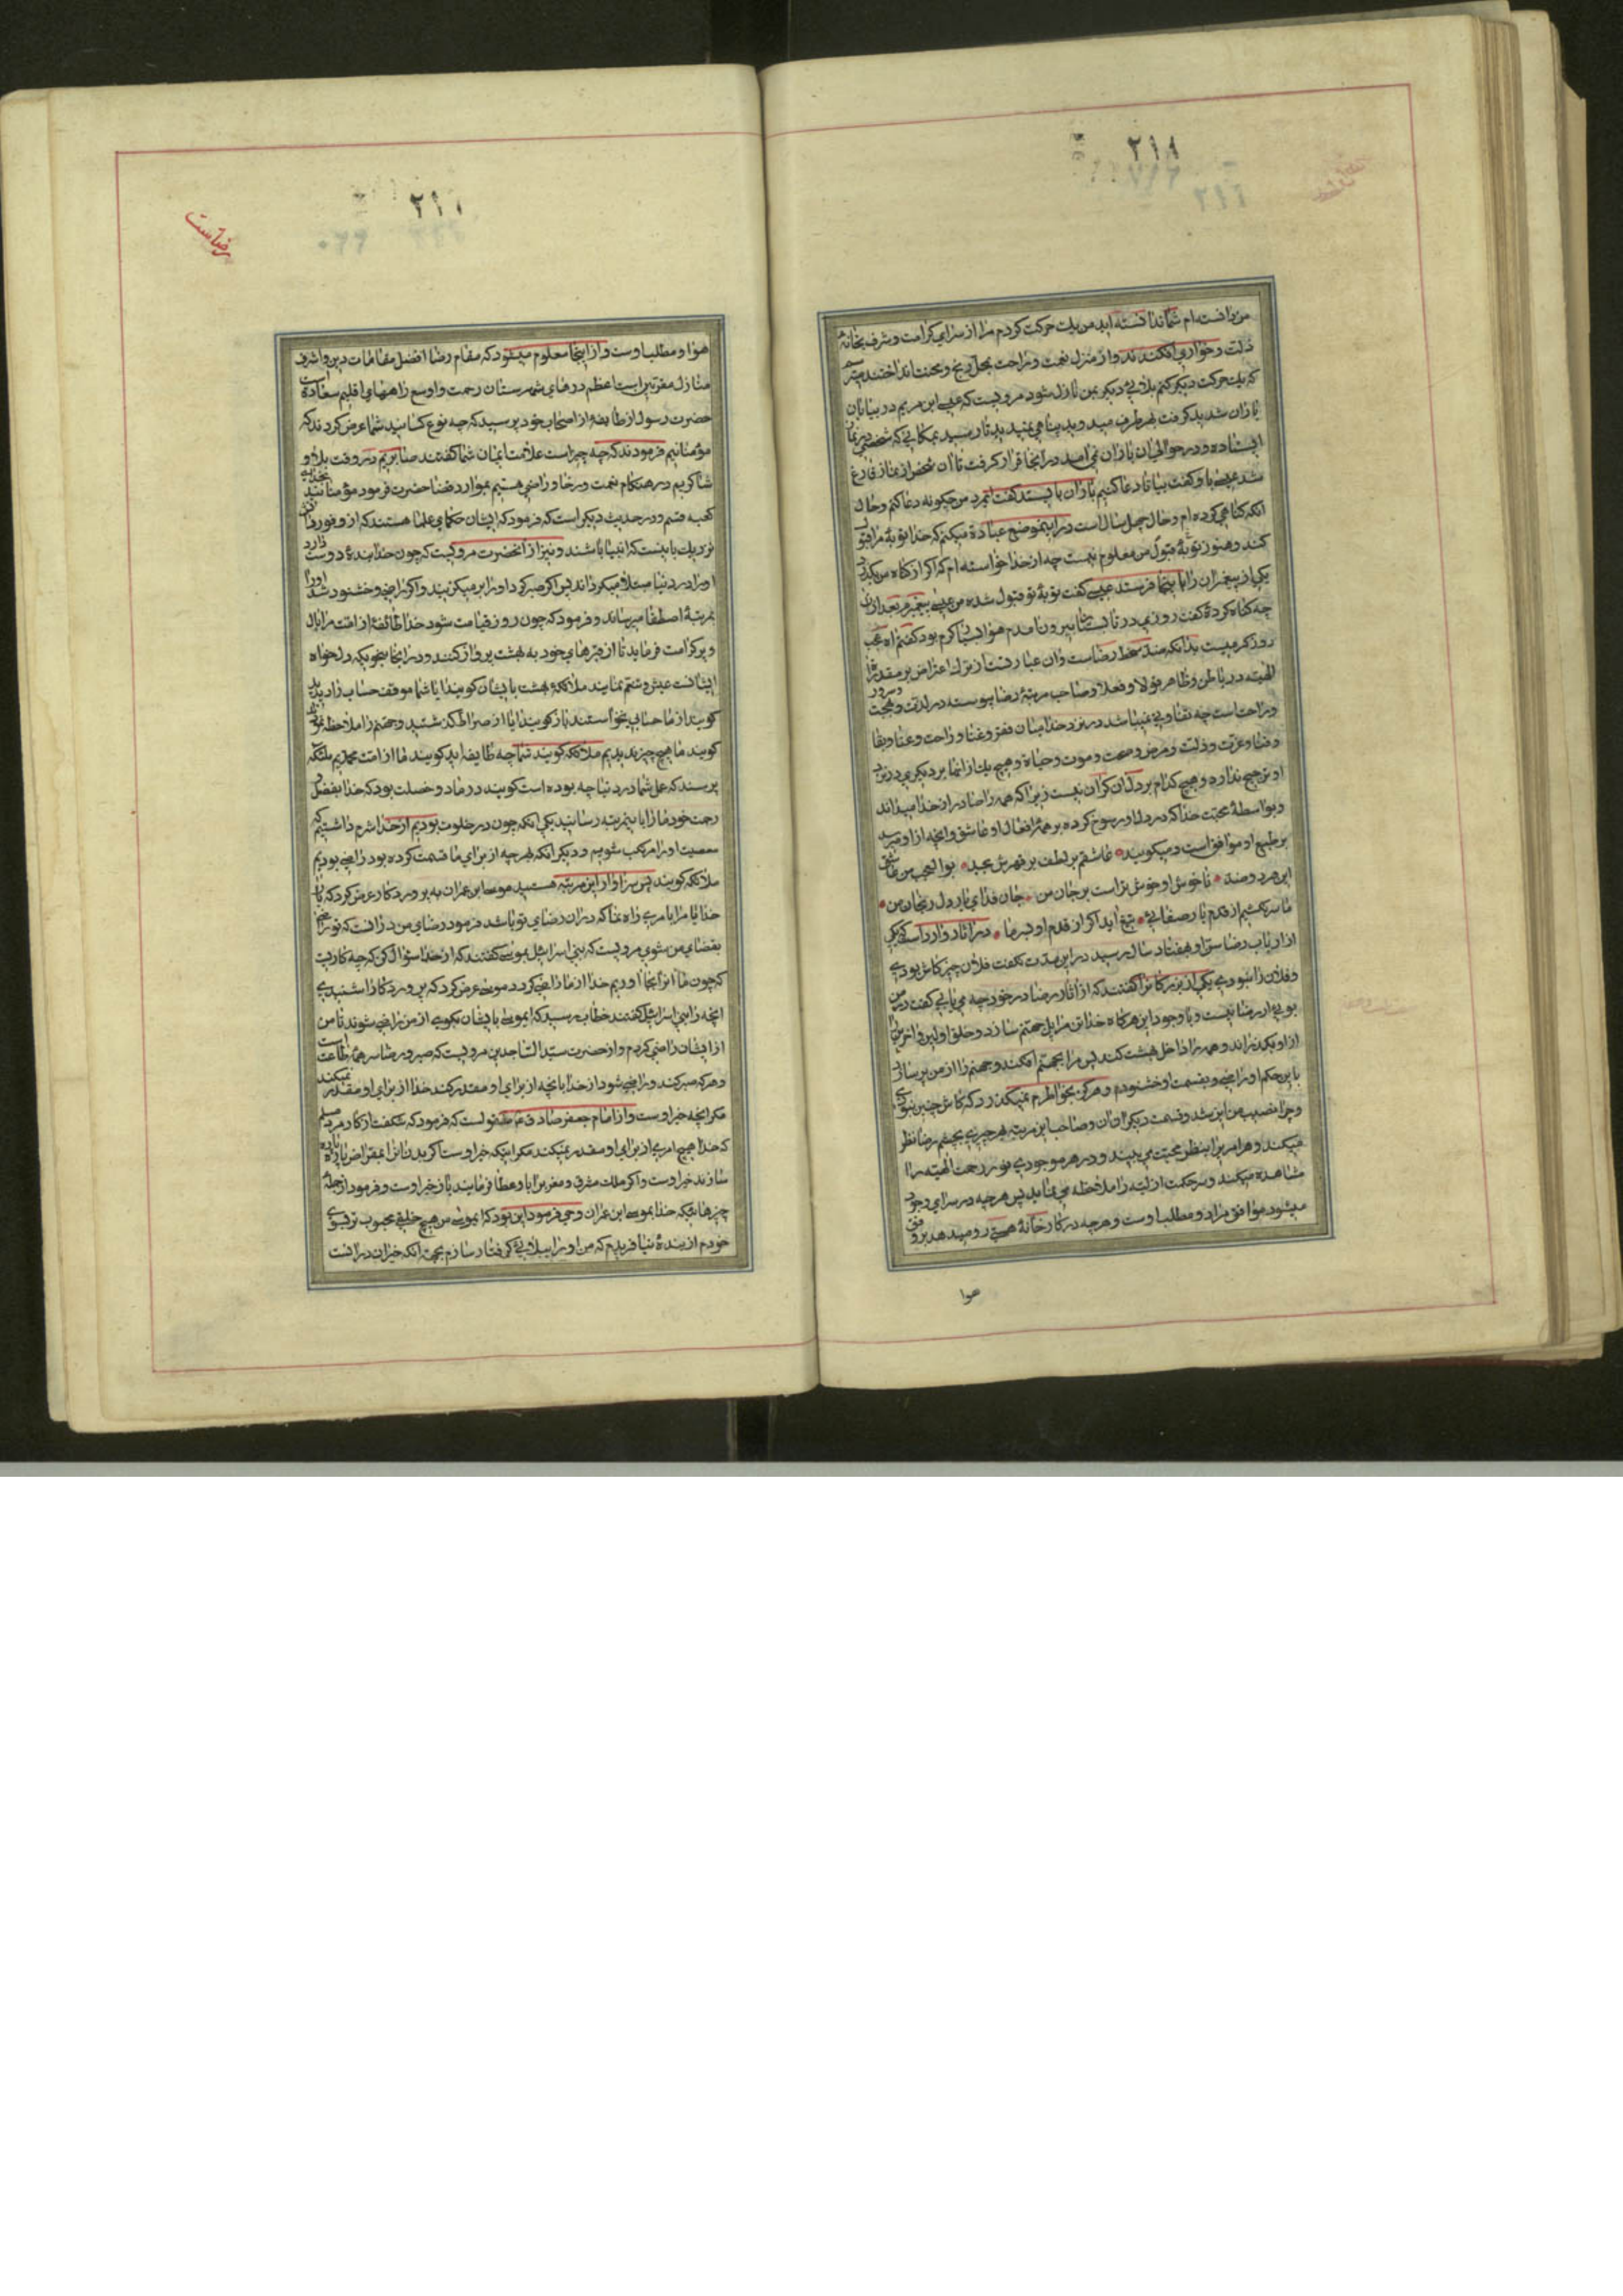 ۲۱۱
من یافته‌ام شما ندانسته اید من یک حرکت کردم مرا از سرای کرامت و شرف بخانهٔ
ذلت و خواری افکندند و از منزل نعمت و راحت بمحل رنج و محنت انداختند میترسم
که یک حرکت دیگر کنم بلائی دیگر بمن نازل شود مرویست که عیسی ابن مریم در بیابان
باران شدید گرفت بهر طرف میدوید پناهی نمیدید تا رسید بمکانی که شخصی در نماز
ایستاده و در حوالی ان باران نمی امد در انجا قرار گرفت تا ان شخص از نماز فارغ
شد عیسی باو گفت بیا تا دعا کنیم باران بایستد گفت ایمرد من چگونه دعا کنم و حال
انکه گناهی کرده‌ام و حال چهل سال است در اینموضع عبادة میکنم که خدا توبهٔ مرا قبول
کند و هنوز توبهٔ قبول من معلوم نیست چه از خدا خواسته‌ام که اگر از گناه من بگذرد
یکی از پیغمبران را باینجا فرستد عیسی گفت توبهٔ تو قبول شده من عیسی پیغمبرم بعد ازان
چه گناه کردهٔ گفت روزی در تابستان بیرون امدم هوا بسیار گرم بود گفتم اه عجب
روز گرمیست بدانکه ضد سخط رضاست و ان عبارتست از ترک اعتراض بر مقدرات
الهیه در باطن و ظاهر قولا و فعلا و صاحب مرتبهٔ رضا پیوسته در لذت و بهجت و سرور
و راحت است چه تفاوتی نمیباشد در نزد خدا میان فقر و غنا و راحت و عنا و بقا
و فنا و عزت و ذلت و مرض و صحت و موت و حیاة و هیچ یک از انها بر دیگری در نزد
او ترجیح ندارد و هیچ کدام بر دل ان گران نیست زیرا که همه را صادر از خدا میداند
و بواسطهٔ محبت خدا که در دل او رسوخ کرده بر همه افعال او عاشق و انچه از او میرسد
بر طبع او موافق است و میگوید عاشقم بر لطف بر قهرش بجد بوالعجب من عاشق
این هر دو ضد ناخوش او خوش تر است بر جان من جان فدای یار دل رنجان من
ما سر نکشیم از قدم یار صفائی تیغ اید اگر از قدم او بسر ما در اثار وارد است که یکی
از ارباب رضا سن او بهفتاد سال رسید در این مدت نگفت فلان چیز کاش بودی
و فلان را نبودی یکی از بزرگانرا گفتند که از اثار رضا در خود چه می‌یابی گفت در من
بوئی از رضا نیست و با وجود این هرگاه خدا تن مرا پل جهنم سازد و خلق اولین و اخرین را
از او بگذراند و همه را داخل بهشت کند پس مرا بجهنم افکند و جهنم را از من پر سازد
باین حکم او راضی و بقسمت او خشنودم و هرگز بخواطرم نمیگذرد که کاش چنین نبودی
و چرا نصیب من این شد و قسمت دیگران ان و صاحب این مرتبه بهر چیزی بچشم رضا نظر
میکند و هر امر یرا بنظر محبت می‌بیند و در هر موجودی نور رحمت الهیه را
مشاهده میکند و سر حکمت ازلیه را ملاحظه می‌نماید پس هر چه در سرای وجود
میشود موافق مراد و مطلب اوست و هر چه در کارخانهٔ هستی رو میدهد بر وفق
هوا
۲۱۱
رضاست
هوا و مطلب اوست و از اینجا معلوم میشود که مقام رضا افضل مقامات دین و اشرف
منازل مقربین است اعظم درهای شهرستان رحمت و اوسع راههای اقلیم سعادة است
حضرت رسول از طایفه از اصحاب خود پرسید که چه نوع کسانید شما عرض کردند که
مؤمنانیم فرمودند که چه چیز است علامت ایمان شما گفتند صابریم در وقت بلا و
شاکریم در هنگام نعمت و رخا و راضی هستیم بموارد قضا حضرت فرمود مؤمنانید بخدای
کعبه قسم و در حدیث دیگر است که فرمود که ایشان حکمای علما هستند که از وفور دانش
نزدیک باینست که انبیا باشند و نیز از انحضرت مرویست که چون خدا بندهٔ دوست دارد
او را در دنیا مبتلا میگرداند پس اگر صبر کرد او را بر میگزیند و اگر راضی و خشنود شد او را
بمرتبهٔ اصطفا میرساند و فرمود که چون روز قیامت شود خدا طائفهٔ از امت مرا بال
و پر کرامت فرماید تا از قبرهای خود به بهشت پرواز کنند و در انجا بنحویکه دلخواه
ایشانست عیش و تنعم نمایند ملائکهٔ بهشت بایشان گویند ایا شما موقف حساب را دیدید
گویند از ما حسابی نخواستند باز گویند ایا از صراط گذشتید و جهنم را ملاحظه نمودید
گویند ما هیچ چیز ندیدیم ملائکه گویند شما چه طایفه اید گویند ما از امت محمدیم ملئکه
پرسند که عمل شما در دنیا چه بوده است گویند در ما دو خصلت بود که خدا بفضل و
رحمت خود ما را باینمرتبه رسانید یکی انکه چون در خلوت بودیم از خدا شرم داشتیم که
معصیت او را مرتکب شویم و دیگر انکه بهر چه از برای ما قسمت کرده بود راضی بودیم
ملائکه گویند پس سزاوار این مرتبه هستید موسی ابن عمران به پروردگار عرض کرد که بار
خدایا مرا بامری راه نما که در ان رضای تو باشد فرمود رضای من در انست که تو راضی
بقضای من شوی مرویست که بنی اسرائیل بموسی گفتند که از خدا سؤال کن که چه کاریست
که چون ما انرا بجا اوریم خدا از ما راضی گردد موسی عرض کرد که پروردگارا شنیدی
انچه را بنی اسرائیل گفتند خطاب رسید که ایموسی بایشان بگو که از من راضی شوند تا من
از ایشان راضی گردم و از حضرت سید الساجدین مرویست که صبر و رضا سر همهٔ طاعت است
و هر که صبر کند و راضی شود از خدا بانچه از برای او مقدر کند خدا از برای او مقدر نمیکند
مگر انچه خیر اوست و از امام جعفر صادق ع منقولست که فرمود که شگفت از کار مرد مسلم
که خدا هیچ امری از برای او مقدر نمیکند مگر اینکه خیر اوست اگر بدن انرا بمقراض پاره پاره
سازند خیر اوست و اگر ملک مشرق و مغرب را باو عطا فرمایند باز خیر اوست و فرمود از جملهٔ
چیزهائیکه خدا بموسی ابن عمران وحی فرمود این بود که ایموسی من هیچ خلقی محبوب تر بسوی
خودم از بندهٔ نیافریدم که من او را ببلائی گرفتار سازم بجهة انکه خیر ان در انست